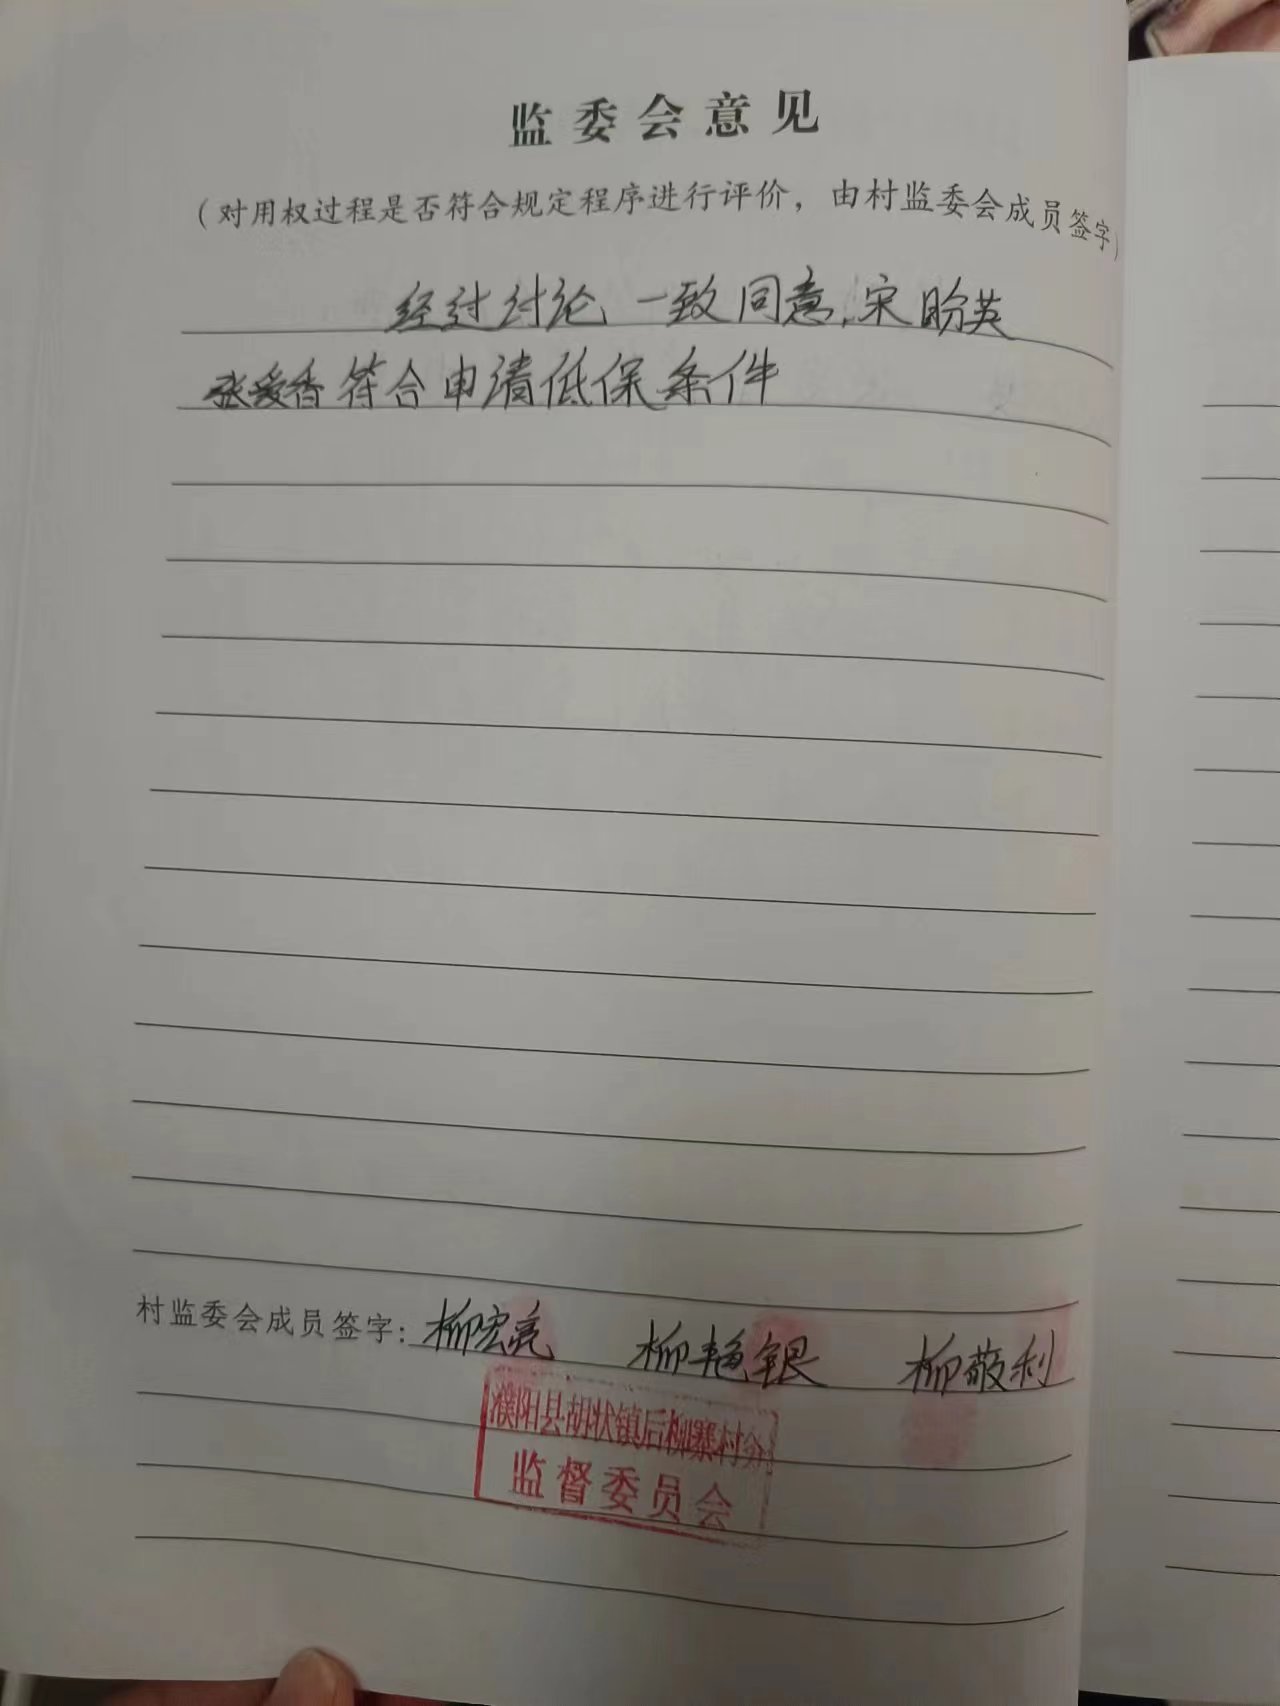 监委会意见
（对用权过程是否符合规定程序进行评价，由村监委会成员签字）
经过讨论，一致同意，宋盼英
张爱香符合申请低保条件
村监委会成员签字：柳宏亮 柳艳银 柳敬利
濮阳县胡状镇后柳寨村务
监督委员会